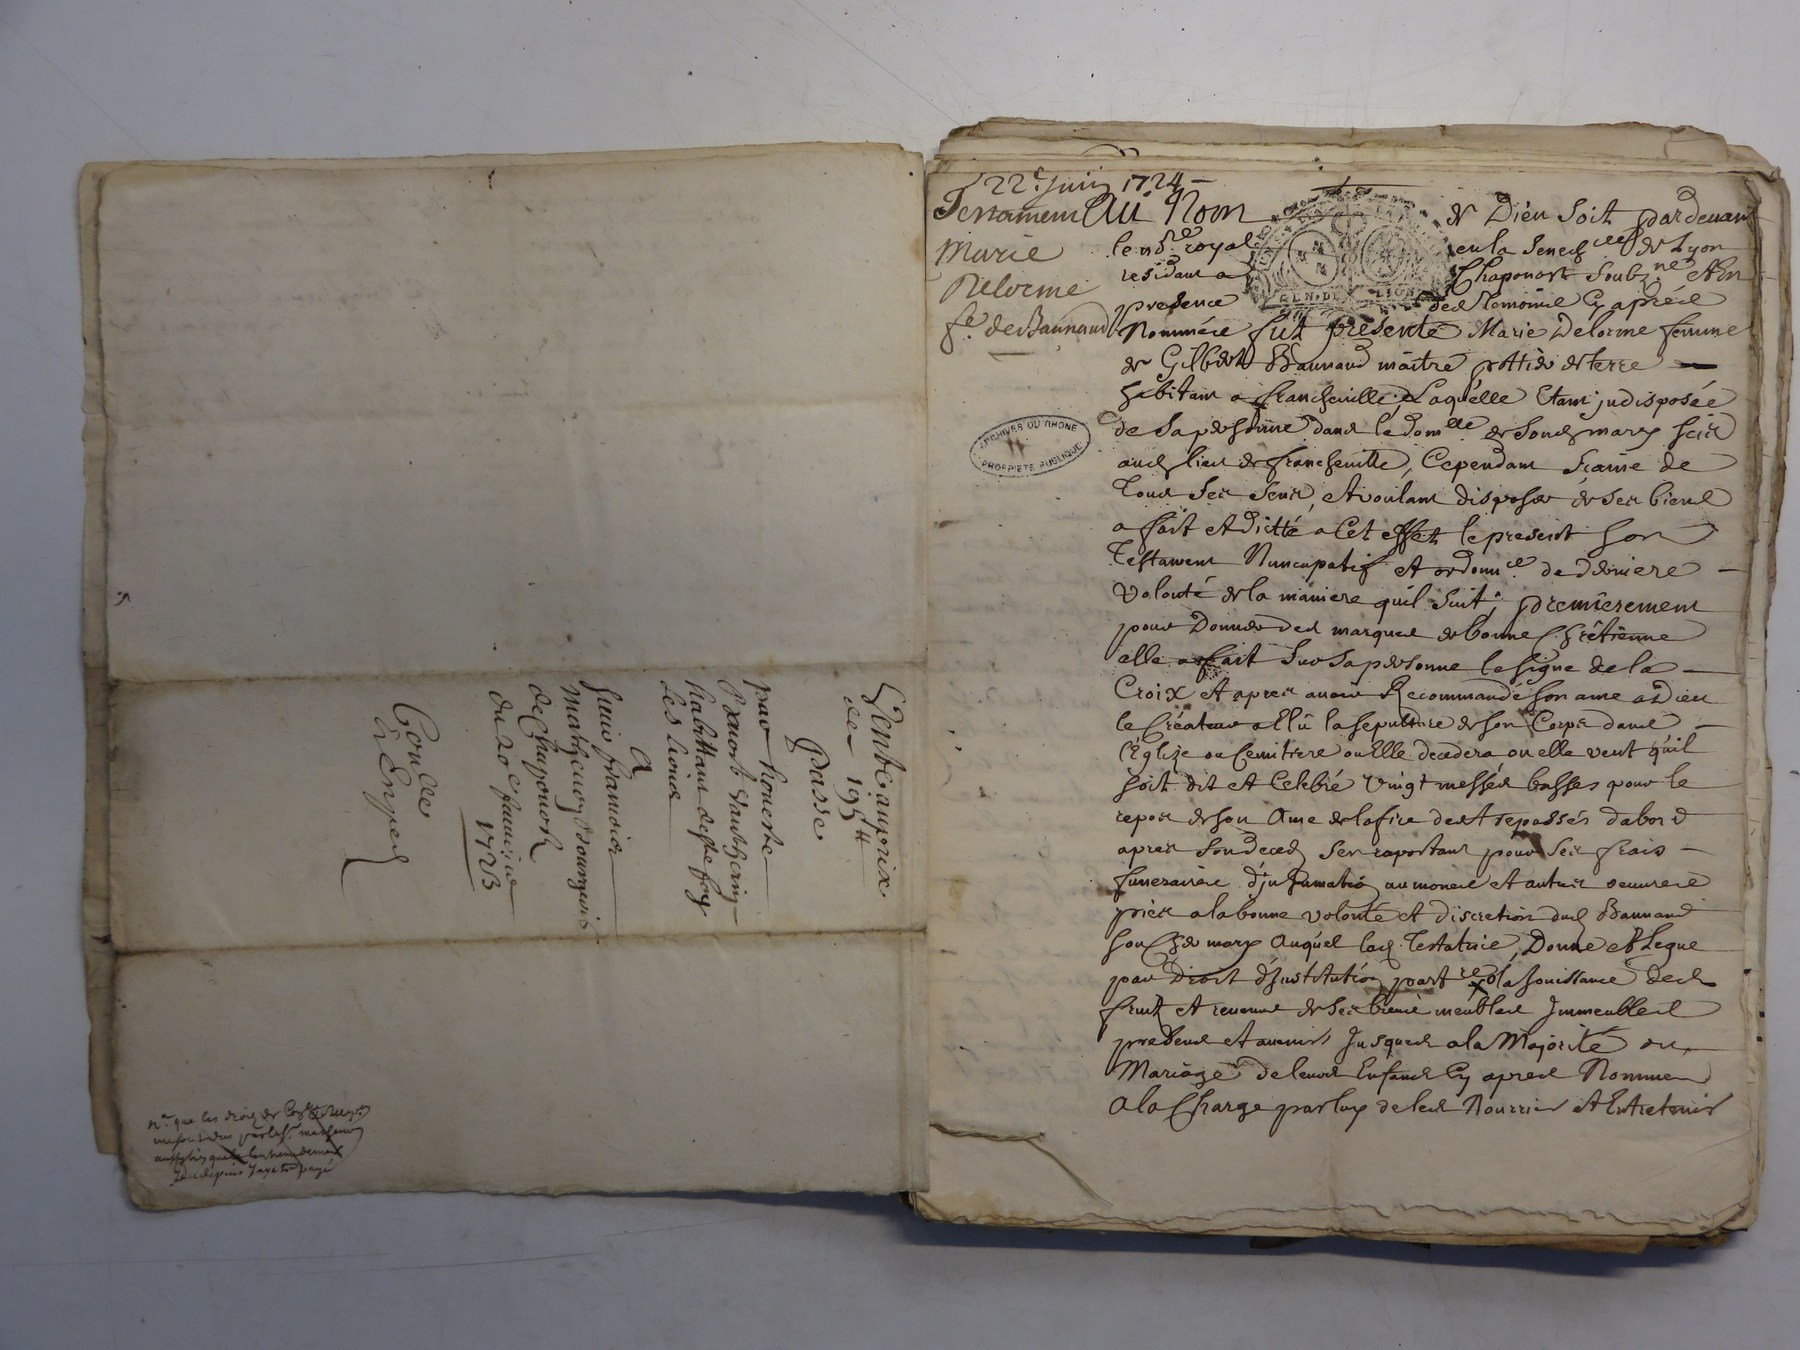 Vente au prix
de 195 ₶
Passée
par honeste
Benoit Vautherin
habittant de Ste foy
Les Lion
A
Sieur francois
Mathevon Bourgeois
de Chaponost
du 20e
1723
Con.lée
Exped
22e Juin 1724
Testament
Marie
Delorme
fe. de Baunand
ARCHIVES DU RHONE
PROPRIETE PUBLIQUE
Au Nom de Dieu soit pardevant
le no.re royal en la Senech.cée de Lyon
residant a Chaponost Soubz.né et en
GEN. DE LION
presence des temoins cy aprés
Nommés fut presente Marie Delorme femme
de Gilbert Baunand maitre pottier de terre
habitant a francheville, Laquelle Etant indisposée
de Sa personne dans le Dom.lle de Sond mary scis
aud lieu de francheville, Cependant Saine de
Tous Ses Sens, et voulant disposer de Ses biens
a fait et dicté a Cet effet le present Son
Testament Nuncupatif et ordonn.ce de derniere
volonté de la maniere quil Suit, premierement
pour Donner des marques de bonne Chrétienne
elle a fait Sur Sa personne le Signe de la
Croix et apres avoir Recommandé Son ame a Dieu
le Créateur a Elû la Sepulture de Son Corps dans
l'Eglize ou Cemitiere ou Elle decedera ou elle veut qu'il
Soit dit et Celebré vingt messes basses pour le
repos de Son Ame et la fice des trepassés dabord
apres Son deced Sen raportant pour Ses frais
funeraires d'inhumation aumones et autres oeuvres
pies a la bonne volonté et discretion dud Baunand
Son Cher mary Auquel lad. Testatrice, Donne et Legue
par Droit d'Institution part.re la Jouissance des
fruits et revenus de Ses biens meubles Immeubles
presens et avenir Jusques a la Majorité ou
Mariage de leurs Enfans Cy apres Nommes
a la Charge par luy de les Nourrir et Entretenir